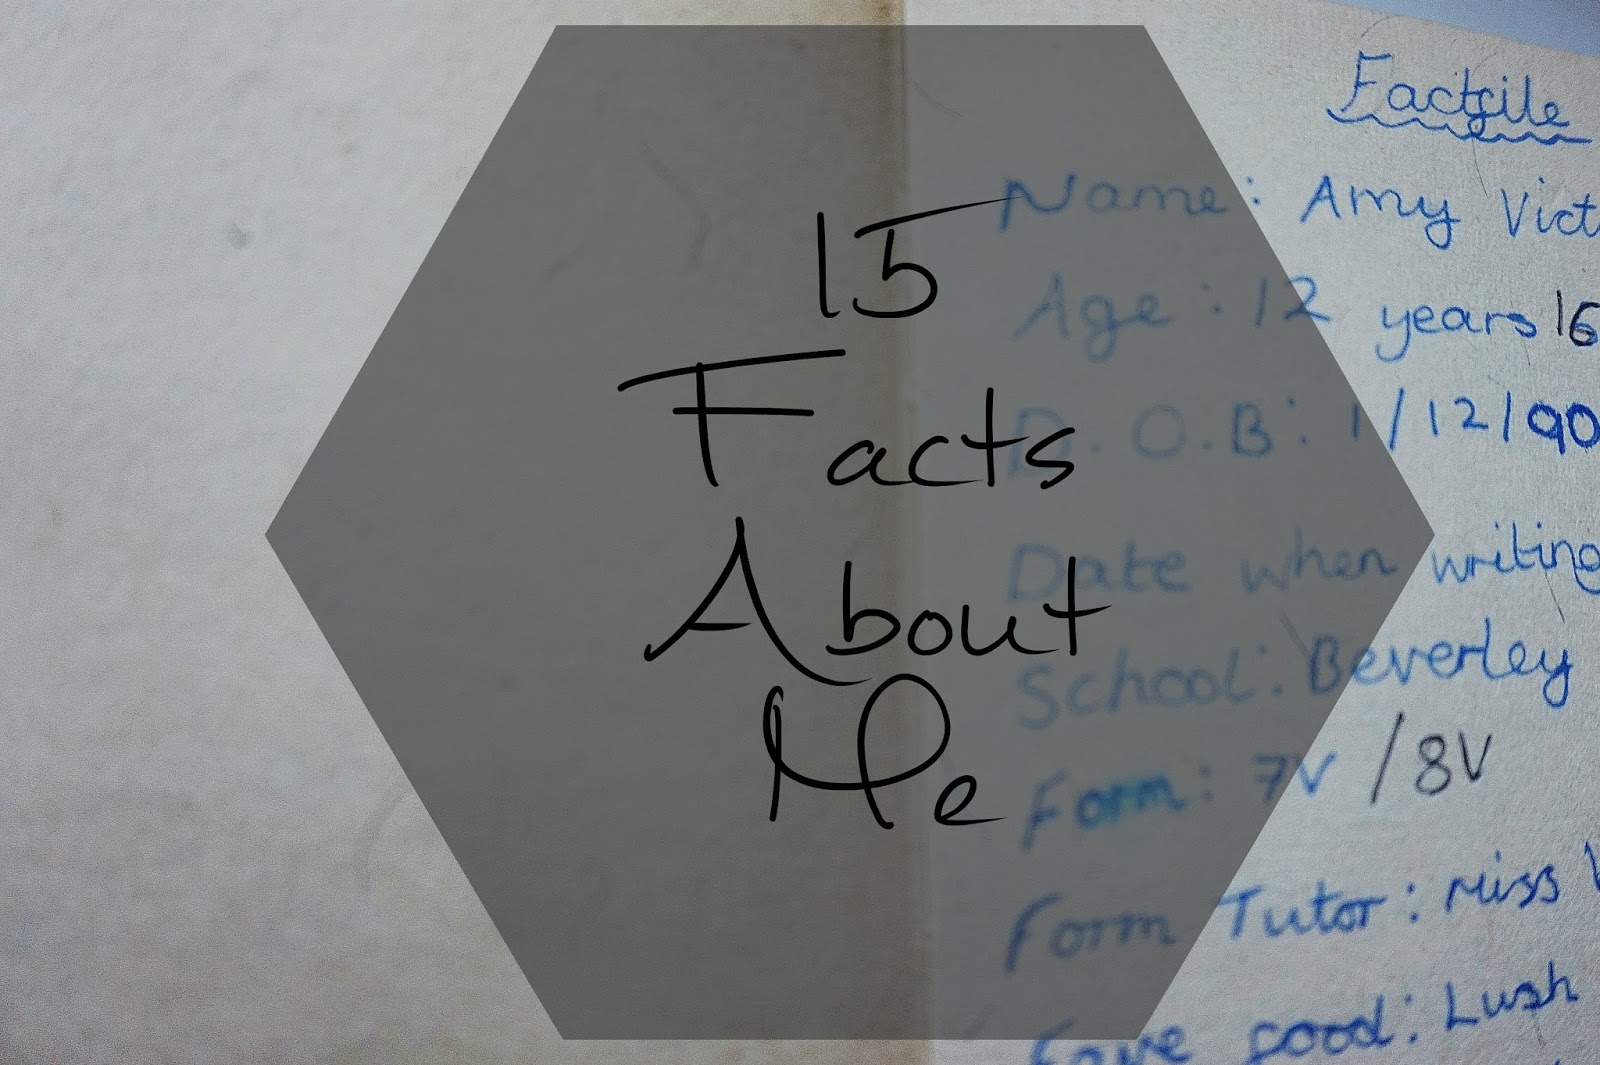 15
Facts
About
Me
Factfile
Name: Amy Vict
Age: 12 years 16
D.O.B: 1/12/90
Date when writing
School: Beverley
Form: 7V /8V
Form Tutor: Miss
Fave food: Lush